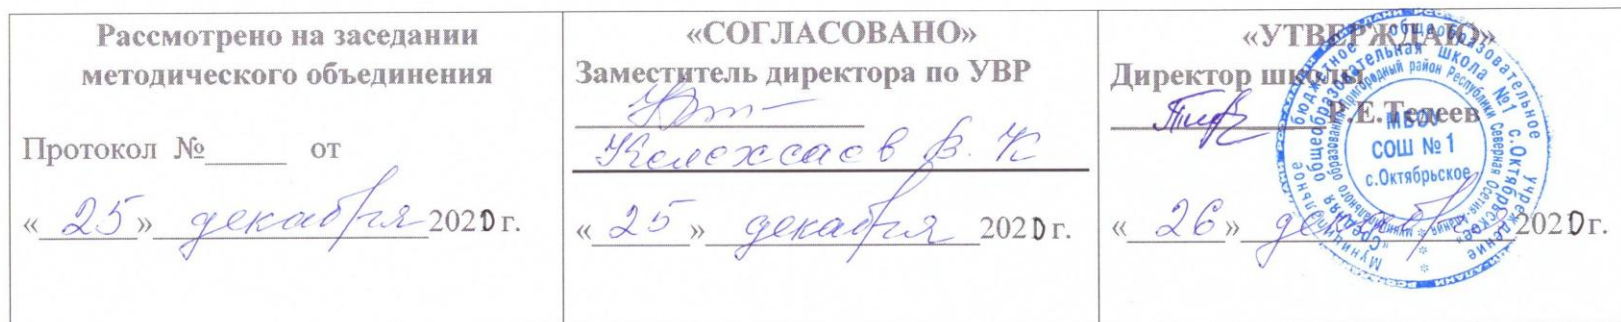 Рассмотрено на заседании
методического объединения
Протокол №______ от
«25» декабря 2020 г.
«СОГЛАСОВАНО»
Заместитель директора по УВР
Келехсаев В. К
«25» декабря 2020 г.
«УТВЕРЖДАЮ»
Директор школы
Р.Е.Тедеев
«26» декабря 2020 г.
МБОУ
СОШ № 1
с.Октябрьское